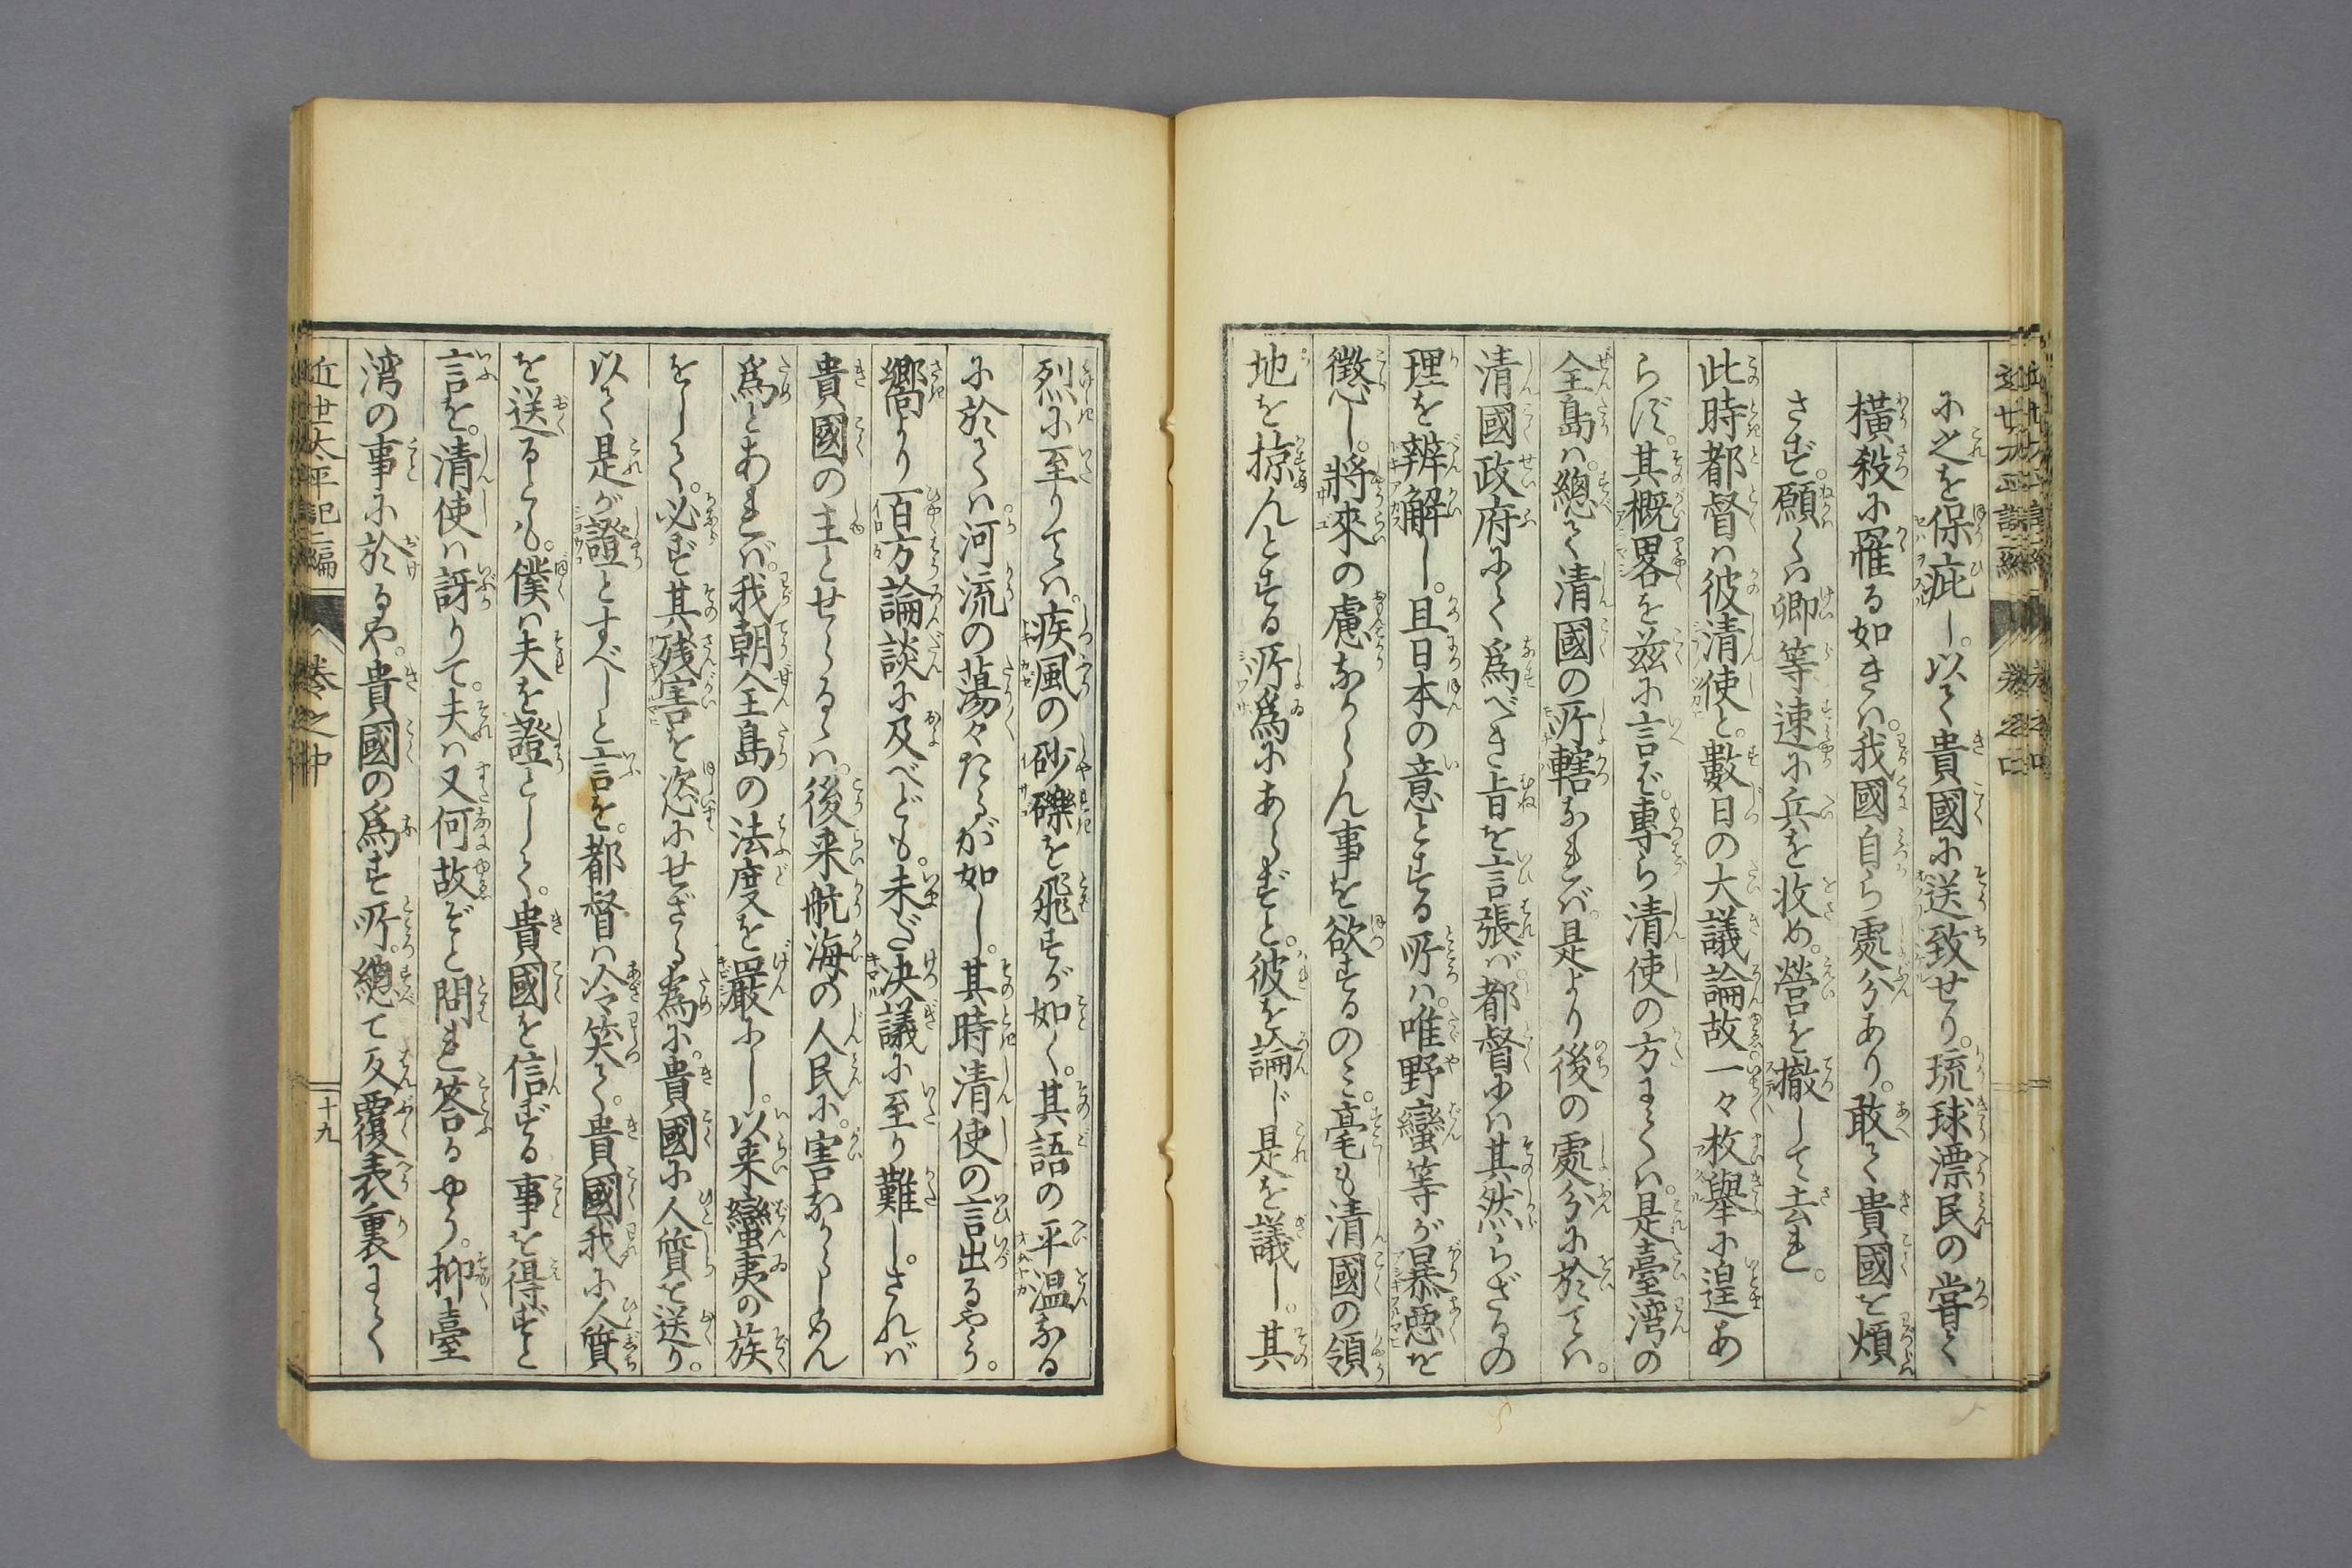 に之を保庇し。以て貴國に送致せり。琉球漂民の嘗て
横殺に罹る如きハ。我國自ら處分あり。敢て貴國を煩
さず。願くハ卿等速に兵を收め。營を撤して去れ。
此時都督ハ彼清使と。數日の大議論故。一々枚舉に遑あ
らず。其概畧を茲に言バ。專ら清使の方にてハ。是臺湾の
全島ハ。總て清國の所轄なれバ。是より後の處分に於てハ。
清國政府にて爲べき旨を言張バ。都督にハ其然らざるの
理を辨解し。且日本の意とする所ハ。唯野蠻等が暴惡を
懲し。將來の慮なからん事を欲するのミ。毫も清國の領
地を掠んとする所爲にあらずと。彼を論じ是を議し。其
烈に至りてハ。疾風の砂礫を飛すが如く。其語の平温なる
に於てハ河流の蕩々たるが如し。其時清使の言出るやう。
嚮より百方論談に及べども。未だ决議に至り難し。されバ
貴國の主とせらるゝハ。後来航海の人民に。害なからしめん
爲とあれバ。我朝全島の法度を嚴にし。以来蠻夷の族
をして。必ず其残害を恣にせざる為に。貴國に人質を送り。
以て是が證とすべしと言を。都督ハ冷笑て。貴國我に人質
を送るとも。僕ハ夫を證として。貴國を信ずる事を得ずと
言を。清使ハ訝りて。夫ハ又何故ぞと問れ答るやう。抑臺
湾の事に於るや。貴國の爲す所。總て反覆表裏にて
近世太平記二編　卷之中　十九